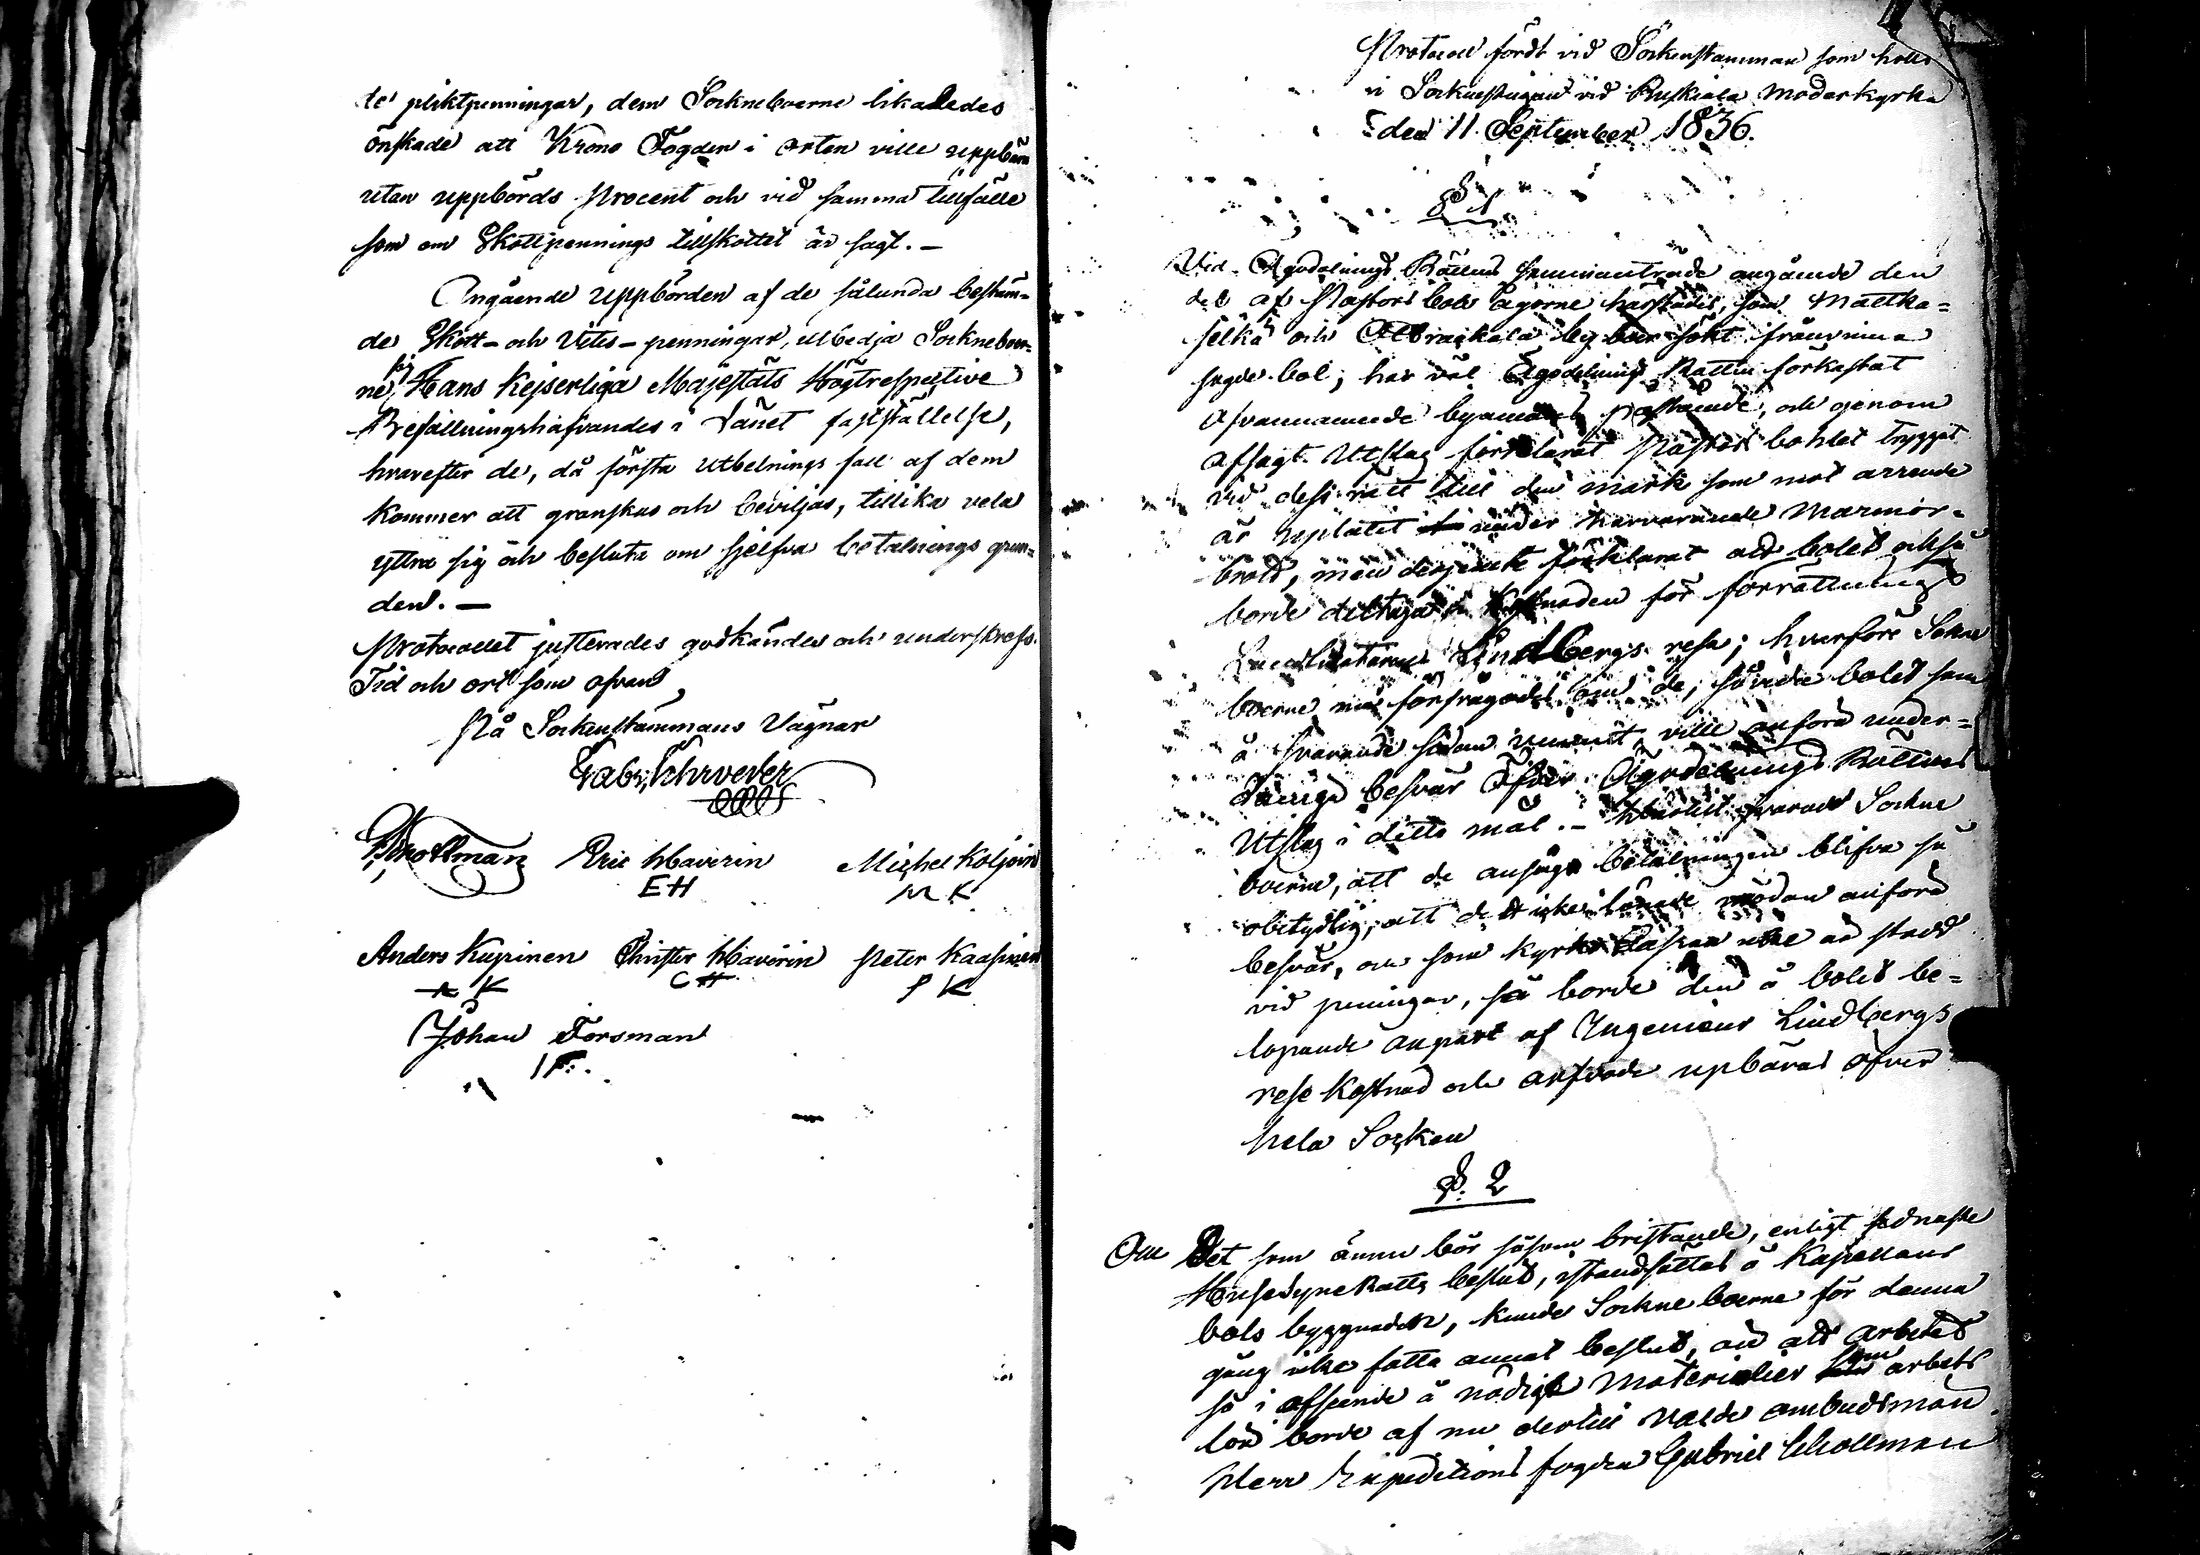 de pliktpenningar, dem Sockneboerne likaledes
önskade att Krono Fogden i orten ville uppbära
utan uppbörds Procent och vid samma tillfälle
som om Skottpennings tillskottet är sagt. —
Angående uppbörden af de sålunda bestäm=
de Skott- och Vites-penningar, utbedja Sockneboer=
ne sig Hans Kejserliga Majestäts Högtrespective
Befallningshafvandes i Länet fastställelse,
hvarefter de, då första utdelnings fall af dem
kommer att granskas och beviljas, tillika vela
yttra sig och besluta om sjelfva betalnings grun=
den. —
Protocollet justerades godkändes och underskrefs.
Tid och ort som ofvan
På Sockenstämmans Vägnar
Gabr. Schrveder
Eric Haverin Michel Koljoin
EH MK
Anders Kupinen Christer Haverin Peter Kaasinen
AK CH PK
Johan Forsman
IF.
Protocoll fördt vid Sockenstämman som holls
i Sockenstugan vid Ruskiala Moderkyrka
den 11 September 1836.
§ 1
Vid Ägodelnings Rättens sammanträde angående den
del af Pastors bols ägorne härstädes, som Matka=
selkä och Otrakkala byboer sökt frånvinna
sagde bol; har väl Ägodelnings Rätten förkastat
ofvannämnde byamäns påstående, och genom
afsagt Utslag förklarat Pastors bohlet tryggat
vid dess rätt till den mark som mot arrende
är uplåtit under härvarande Marmor=
brott, men derjemte förklarat att bolet också
borde deltaga i kostnaden för förrättnings
Landtmätaren Lindbergs resa; hvarföre Sockne
boerne nu förfrågades om de, såvida bolet som
å svarande sidan vunnit, ville anföra under=
dåniga besvär öfver Ägodelnings Rättens
Utslag i detta mål. — Härtill svarade Sockne
boerne, att de ansågo betalningen blifva så
obetydlig, att det icke lönade mödan anföra
besvär, och som kyrko Cassan icke är stadd
vid penningar, så borde den å bolet be=
löpande anpart af Ingenieur Lindbergs
rese kostnad och arfvode upbäras öfver
hela Socken
§. 2
Om Det som ännu bör såsom bristande, enligt sednaste
HuseSyneRätts beslut, iståndsättas å Kapellans
bols byggnaden, kunde Sockneboerne för denna
gång icke fatta annat beslut, än att arbetet
så i afseende å nödiga Materialier som arbets
lön borde af nu dertill valde ombudsman
Herr Expeditions fogden Gabriel Wollman